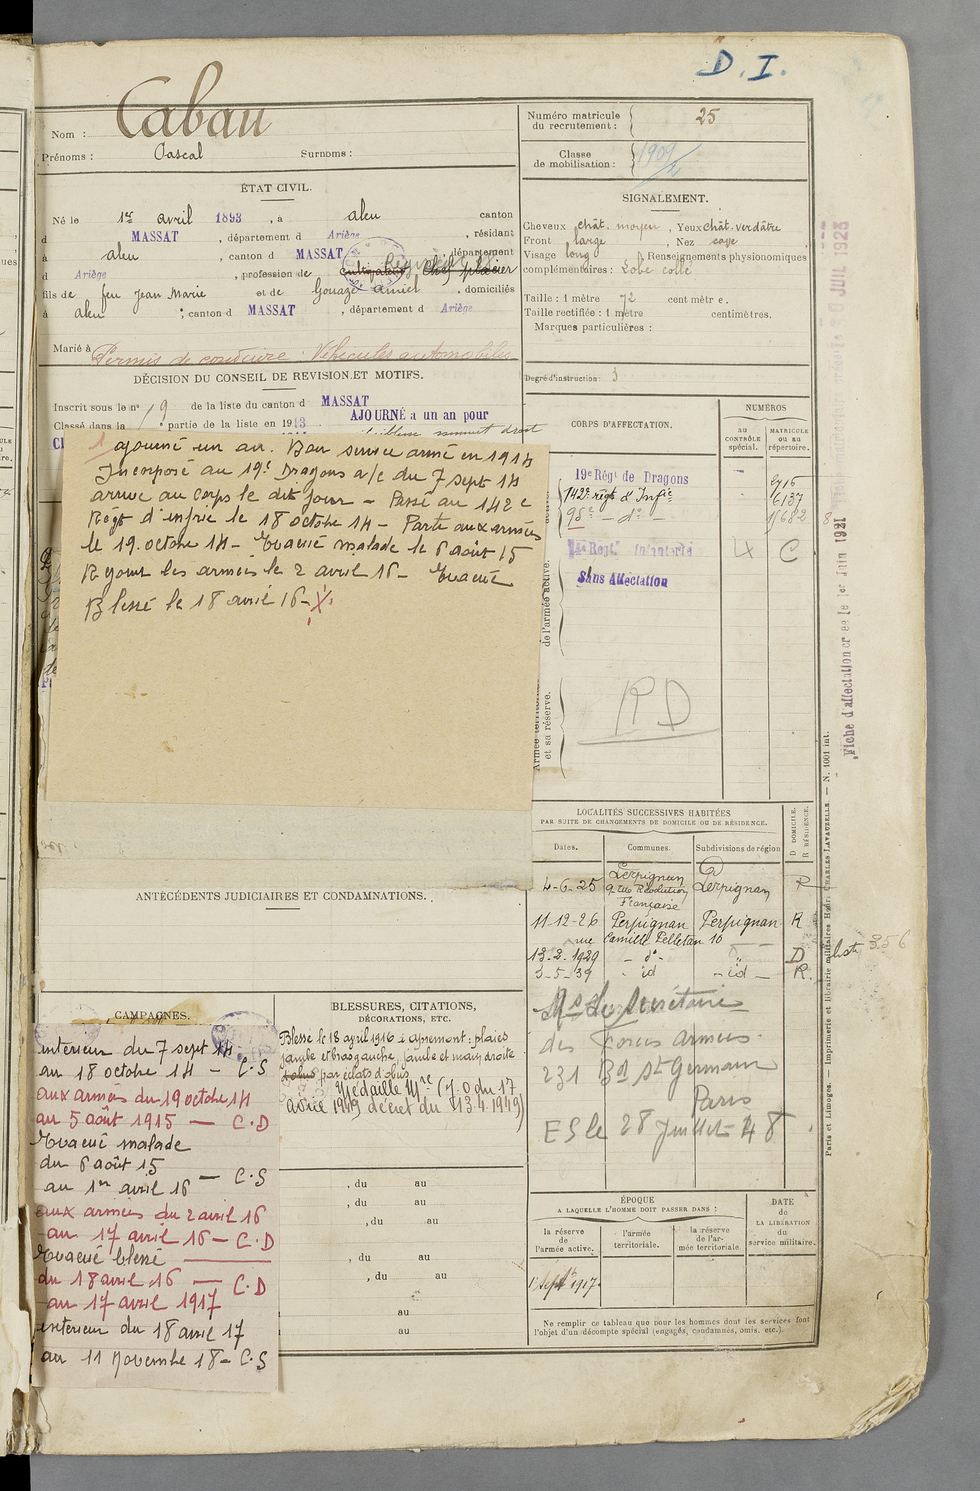 D. I.
Nom : Cabau
Prénoms : Pascal Surnoms :
ÉTAT CIVIL.
Né le 1er avril 1893, à aleu canton
d MASSAT, département d Ariège, résidant
à aleu, canton d MASSAT, département
d Ariège, profession de cultivateur
fils de feu Jean Marie et de Gouazé, domiciliés
à aleu ; canton d MASSAT, département d Ariège
Marié à
Permis de conduire : Véhicules automobiles
DÉCISION DU CONSEIL DE REVISION ET MOTIFS.
Inscrit sous le no 19 de la liste du canton d MASSAT
Classé dans la partie de la liste en 1913 AJOURNÉ a un an pour
faiblesse sommet droit
ajourné un an. Bon service armé en 1914
Incorporé au 19e Dragons a/c du 7 sept 14
arrive au corps le dit jour – Passé au 142e
Régt d'infrie le 18 octobre 14 – Parti aux armées
le 19 octobre 14 – Evacué malade le 6 août 15
Rejoint les armées le 2 avril 16 – Evacué
Blessé le 18 avril 16 – X.
ANTÉCÉDENTS JUDICIAIRES ET CONDAMNATIONS.
CAMPAGNES.
intérieur du 7 sept 14
au 18 octobre 14 – C.S
aux armées du 19 octobre 14
au 5 août 1915 — C.D
Evacué malade
du 6 août 15
au 1er avril 16 — C.S
aux armées du 2 avril 16
au 17 avril 16 – C.D
Evacué blessé
du 18 avril 16 — C.D
au 17 avril 1917
intérieur du 18 avril 17
au 11 Novembre 18 – C.S
BLESSURES, CITATIONS,
DÉCORATIONS, ETC.
Blessé le 18 avril 1916 à apremont : plaies
jambe et bras gauche, jambe et main droite
par éclats d'obus
Médaille Mre (J.O du 17
avril 1949 décret du 13.4.1949)
, du au
, du au
, du au
, du au
, du au
au
au
Numéro matricule
du recrutement : 25
Classe
de mobilisation : 1909/2
SIGNALEMENT.
Cheveux chât. moyen, Yeux chât. verdâtre
Front large, Nez
Visage long Renseignements physionomiques
complémentaires : Lobe collé
Taille : 1 mètre 72 centimètre.
Taille rectifiée : 1 mètre centimètres.
Marques particulières :
Degré d'instruction : 3
CORPS D'AFFECTATION.
NUMÉROS
AU
CONTRÔLE
spécial.
MATRICULE
OU AU
répertoire.
de l'armée active.
19e Régt de Dragons
142e régt d'Infie 6137
95e – do –
Régt Infanterie 4 C
Sans Affectation
Armée territoriale
et sa réserve.
RD
LOCALITÉS SUCCESSIVES HABITÉES
PAR SUITE DE CHANGEMENTS DE DOMICILE OU DE RÉSIDENCE.
Dates. Communes. Subdivisions de région
D DOMICILE.
R RÉSIDENCE.
4-6-25 Perpignan Perpignan R
9 rue Révolution
Française
11-12-26 Perpignan Perpignan R
rue Camille Pelletan 10
13-2-1929 – do – " D
3-5-39 – id – id – R.
liste 356
Ms du Secrétaire
des Forces armées
231 Bd St Germain
Paris
ES le 28 Juillet 48
ÉPOQUE
A LAQUELLE L'HOMME DOIT PASSER DANS :
la réserve
de
l'armée active.
l'armée
territoriale.
la réserve
de l'ar-
mée territoriale.
DATE
de
LA LIBÉRATION
du
service militaire.
1 Septbre 1917
Ne remplir ce tableau que pour les hommes dont les services font
l'objet d'un décompte spécial (engagés, condamnés, omis, etc.).
Paris et Limoges. — Imprimerie et librairie militaires Henri CHARLES-LAVAUZELLE. — N. 1001 int.
Fiche d'affectation créée le 1er Juin 1921
JUIL 1923